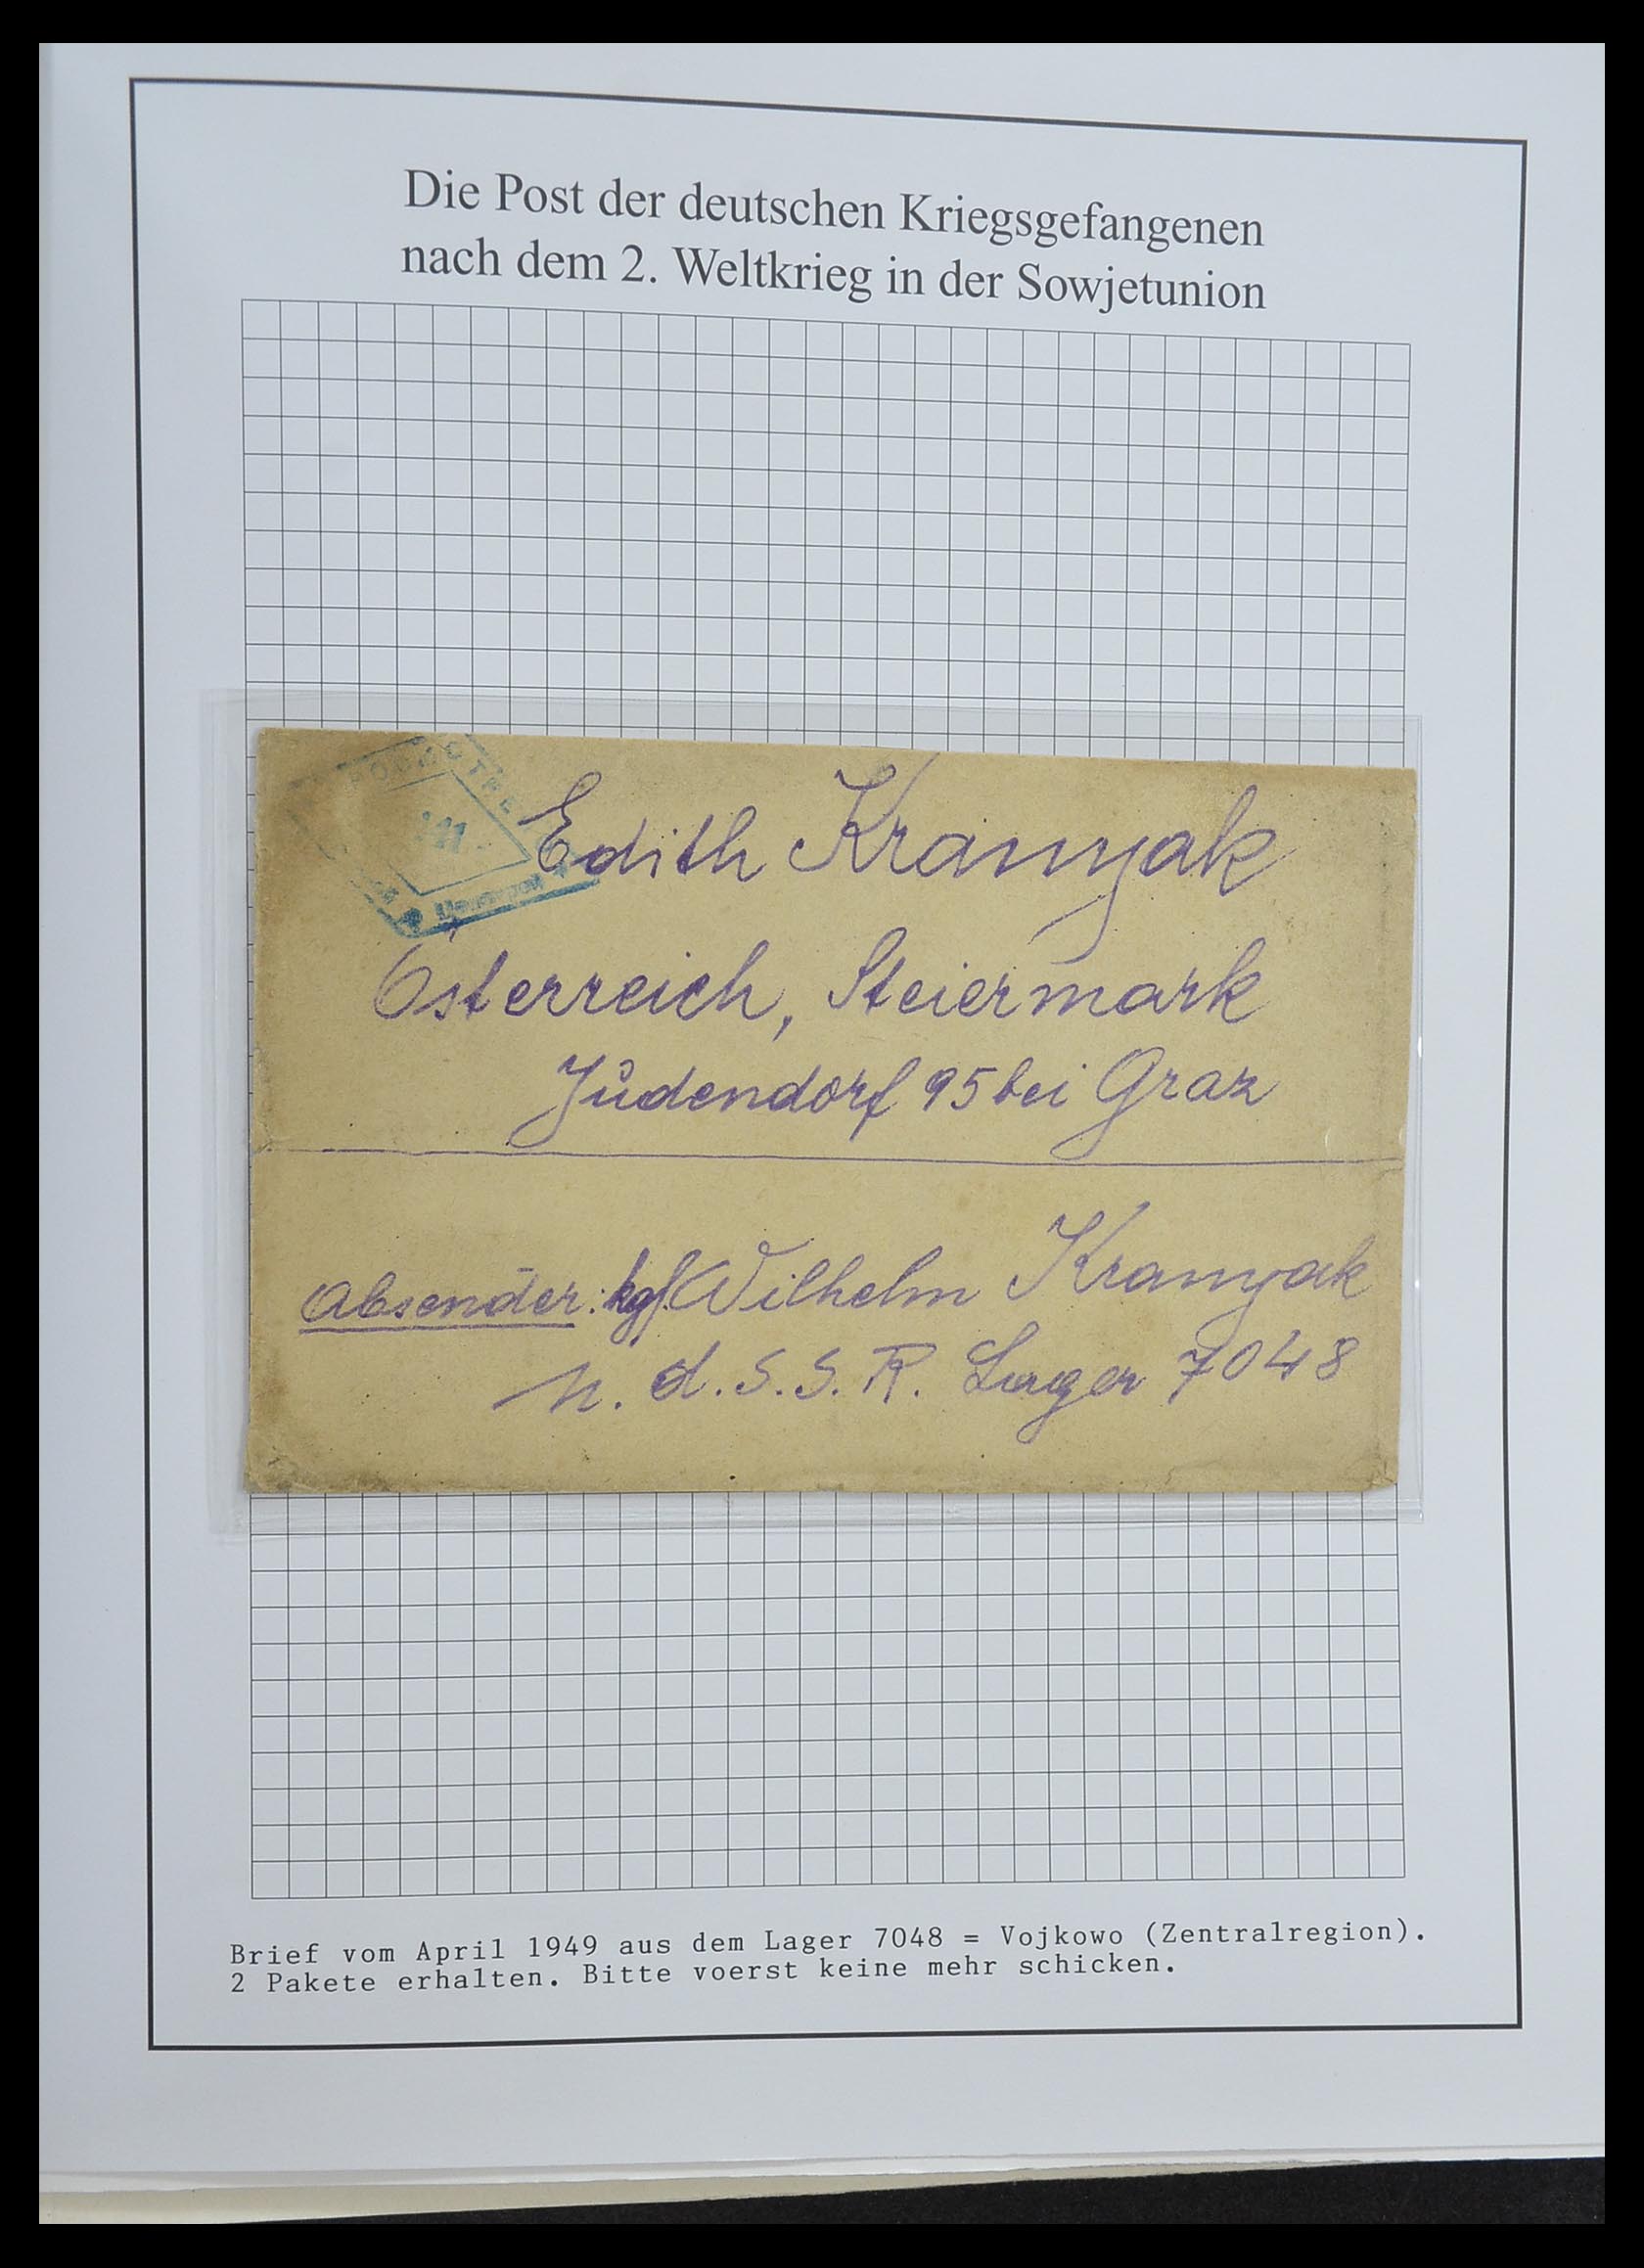 Die Post der deutschen Kriegsgefangenen
nach dem 2. Weltkrieg in der Sowjetunion
Edith Kranyak
Österreich, Steiermark
Jůdendorf 95 bei Graz
Absender: kgf. Wilhelm Kranyak
U. d. S. S. R. Lager 7048
Brief vom April 1949 aus dem Lager 7048 = Vojkowo (Zentralregion).
2 Pakete erhalten. Bitte voerst keine mehr schicken.